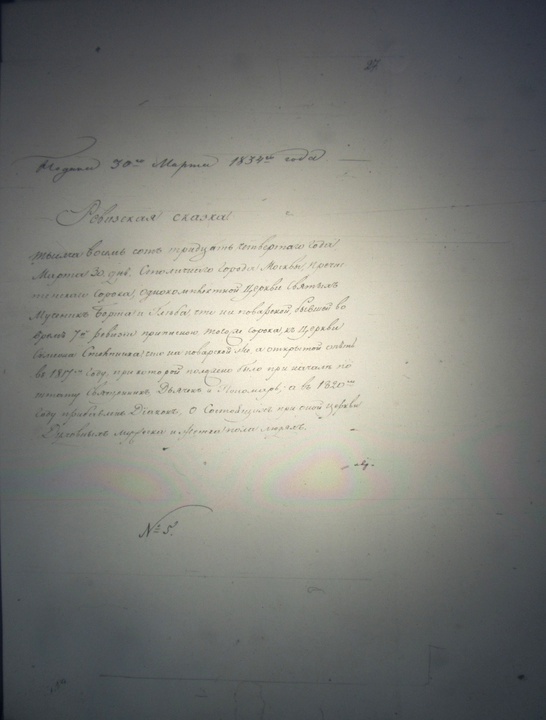 27
Подана 30го Марта 1834го года
Ревизская сказка
тысяча восемь сотъ тридцать четвертаго года
Марта 30 дня, Столичнаго города Москвы, Пречи-
стенскаго сорока, одноклиректной Церкви Святыхъ
Мученикъ Бориса и Глѣба, что на поварской, бывшей во
время 7й ревизіи приписною тогоже сорока, къ Церкви
Симеона Столпника, что на поварской же, а открытой опять
въ 1817м году, при которой положено было при началѣ по
штату Священникъ Дьячекъ и Пономарь, а въ 1820мъ
году прибавленъ Діаконъ. О Состоящихъ при оной церкви
Духовныхъ мужеска и женска пола людяхъ.
№ 5.